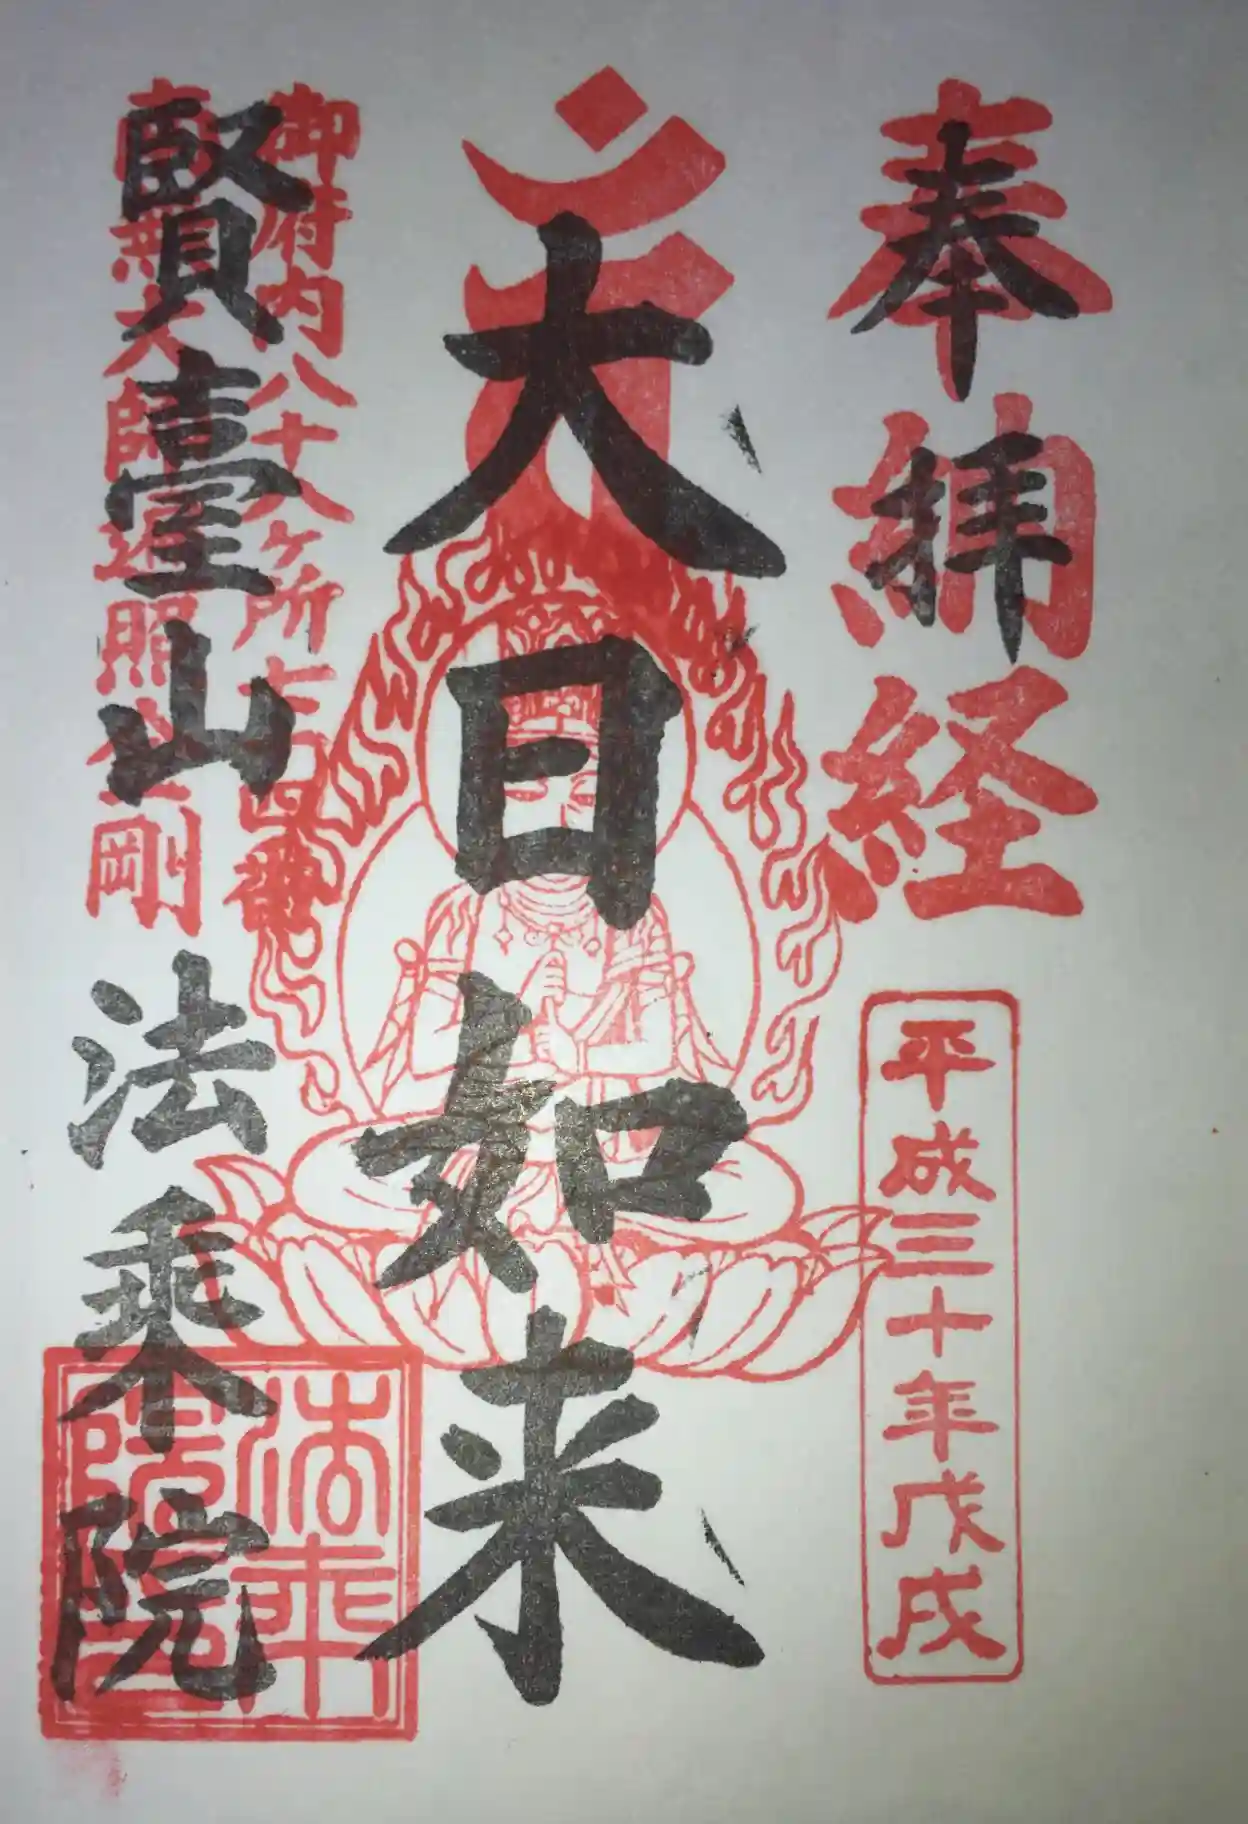 奉納経
奉拝
平成三十年戊戌
大日如来
御府内八十八ヶ所七十四番
南無大師遍照金剛
賢臺山 法乗院
法乗院印